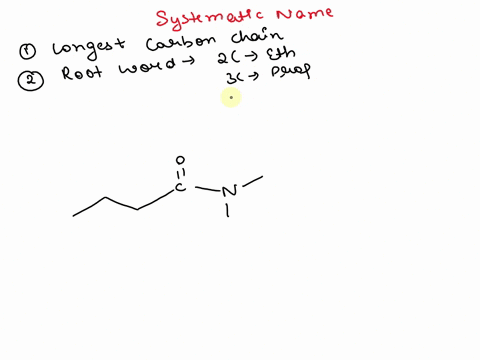 Systematic Name
① Longest Carbon chain
② Root Word → 2C → Eth
3C → Prop
O
C
N